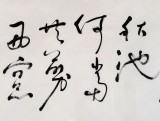 秋池
何當
共剪
西窗